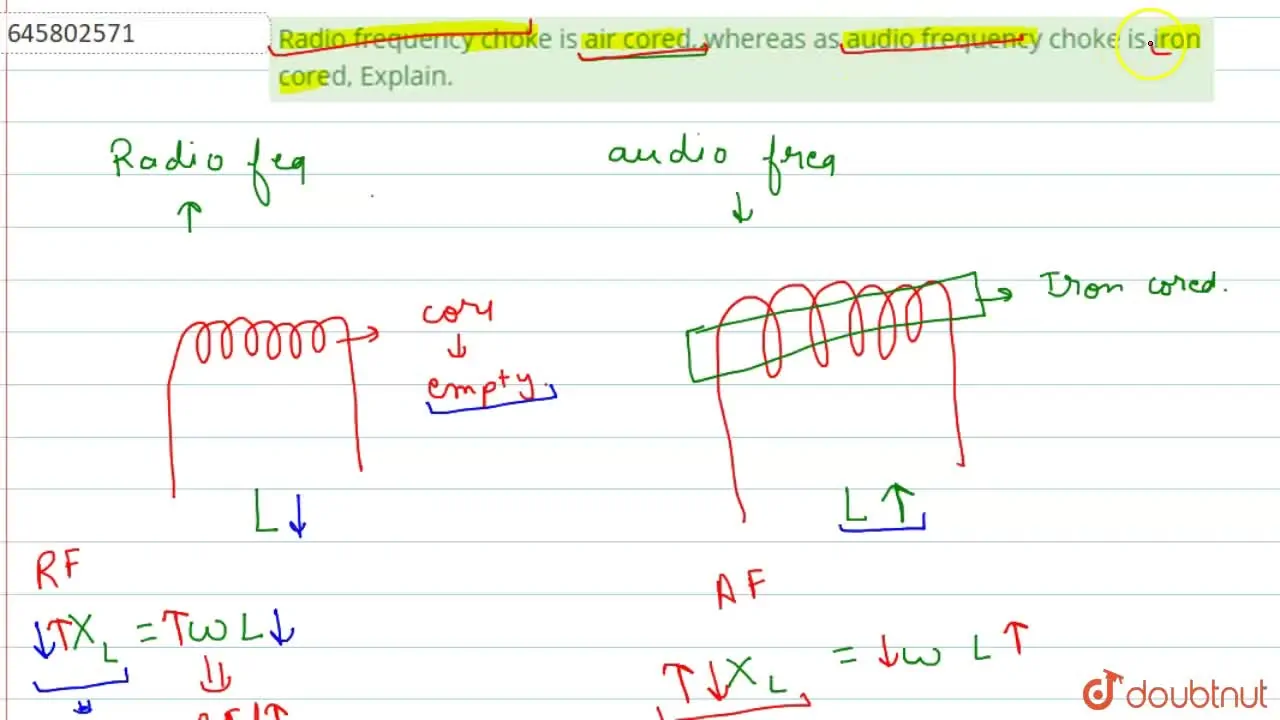 645802571
Radio frequency choke is air cored, whereas as audio frequency choke is iron
cored, Explain.
Radio feq
audio freq
↑
↓
Iron cored.
core
↓
empty.
L ↓
L ↑
RF
AF
↓↑X_L = ↑ω L↓
↑↓X_L = ↓ω L ↑
doubtnut